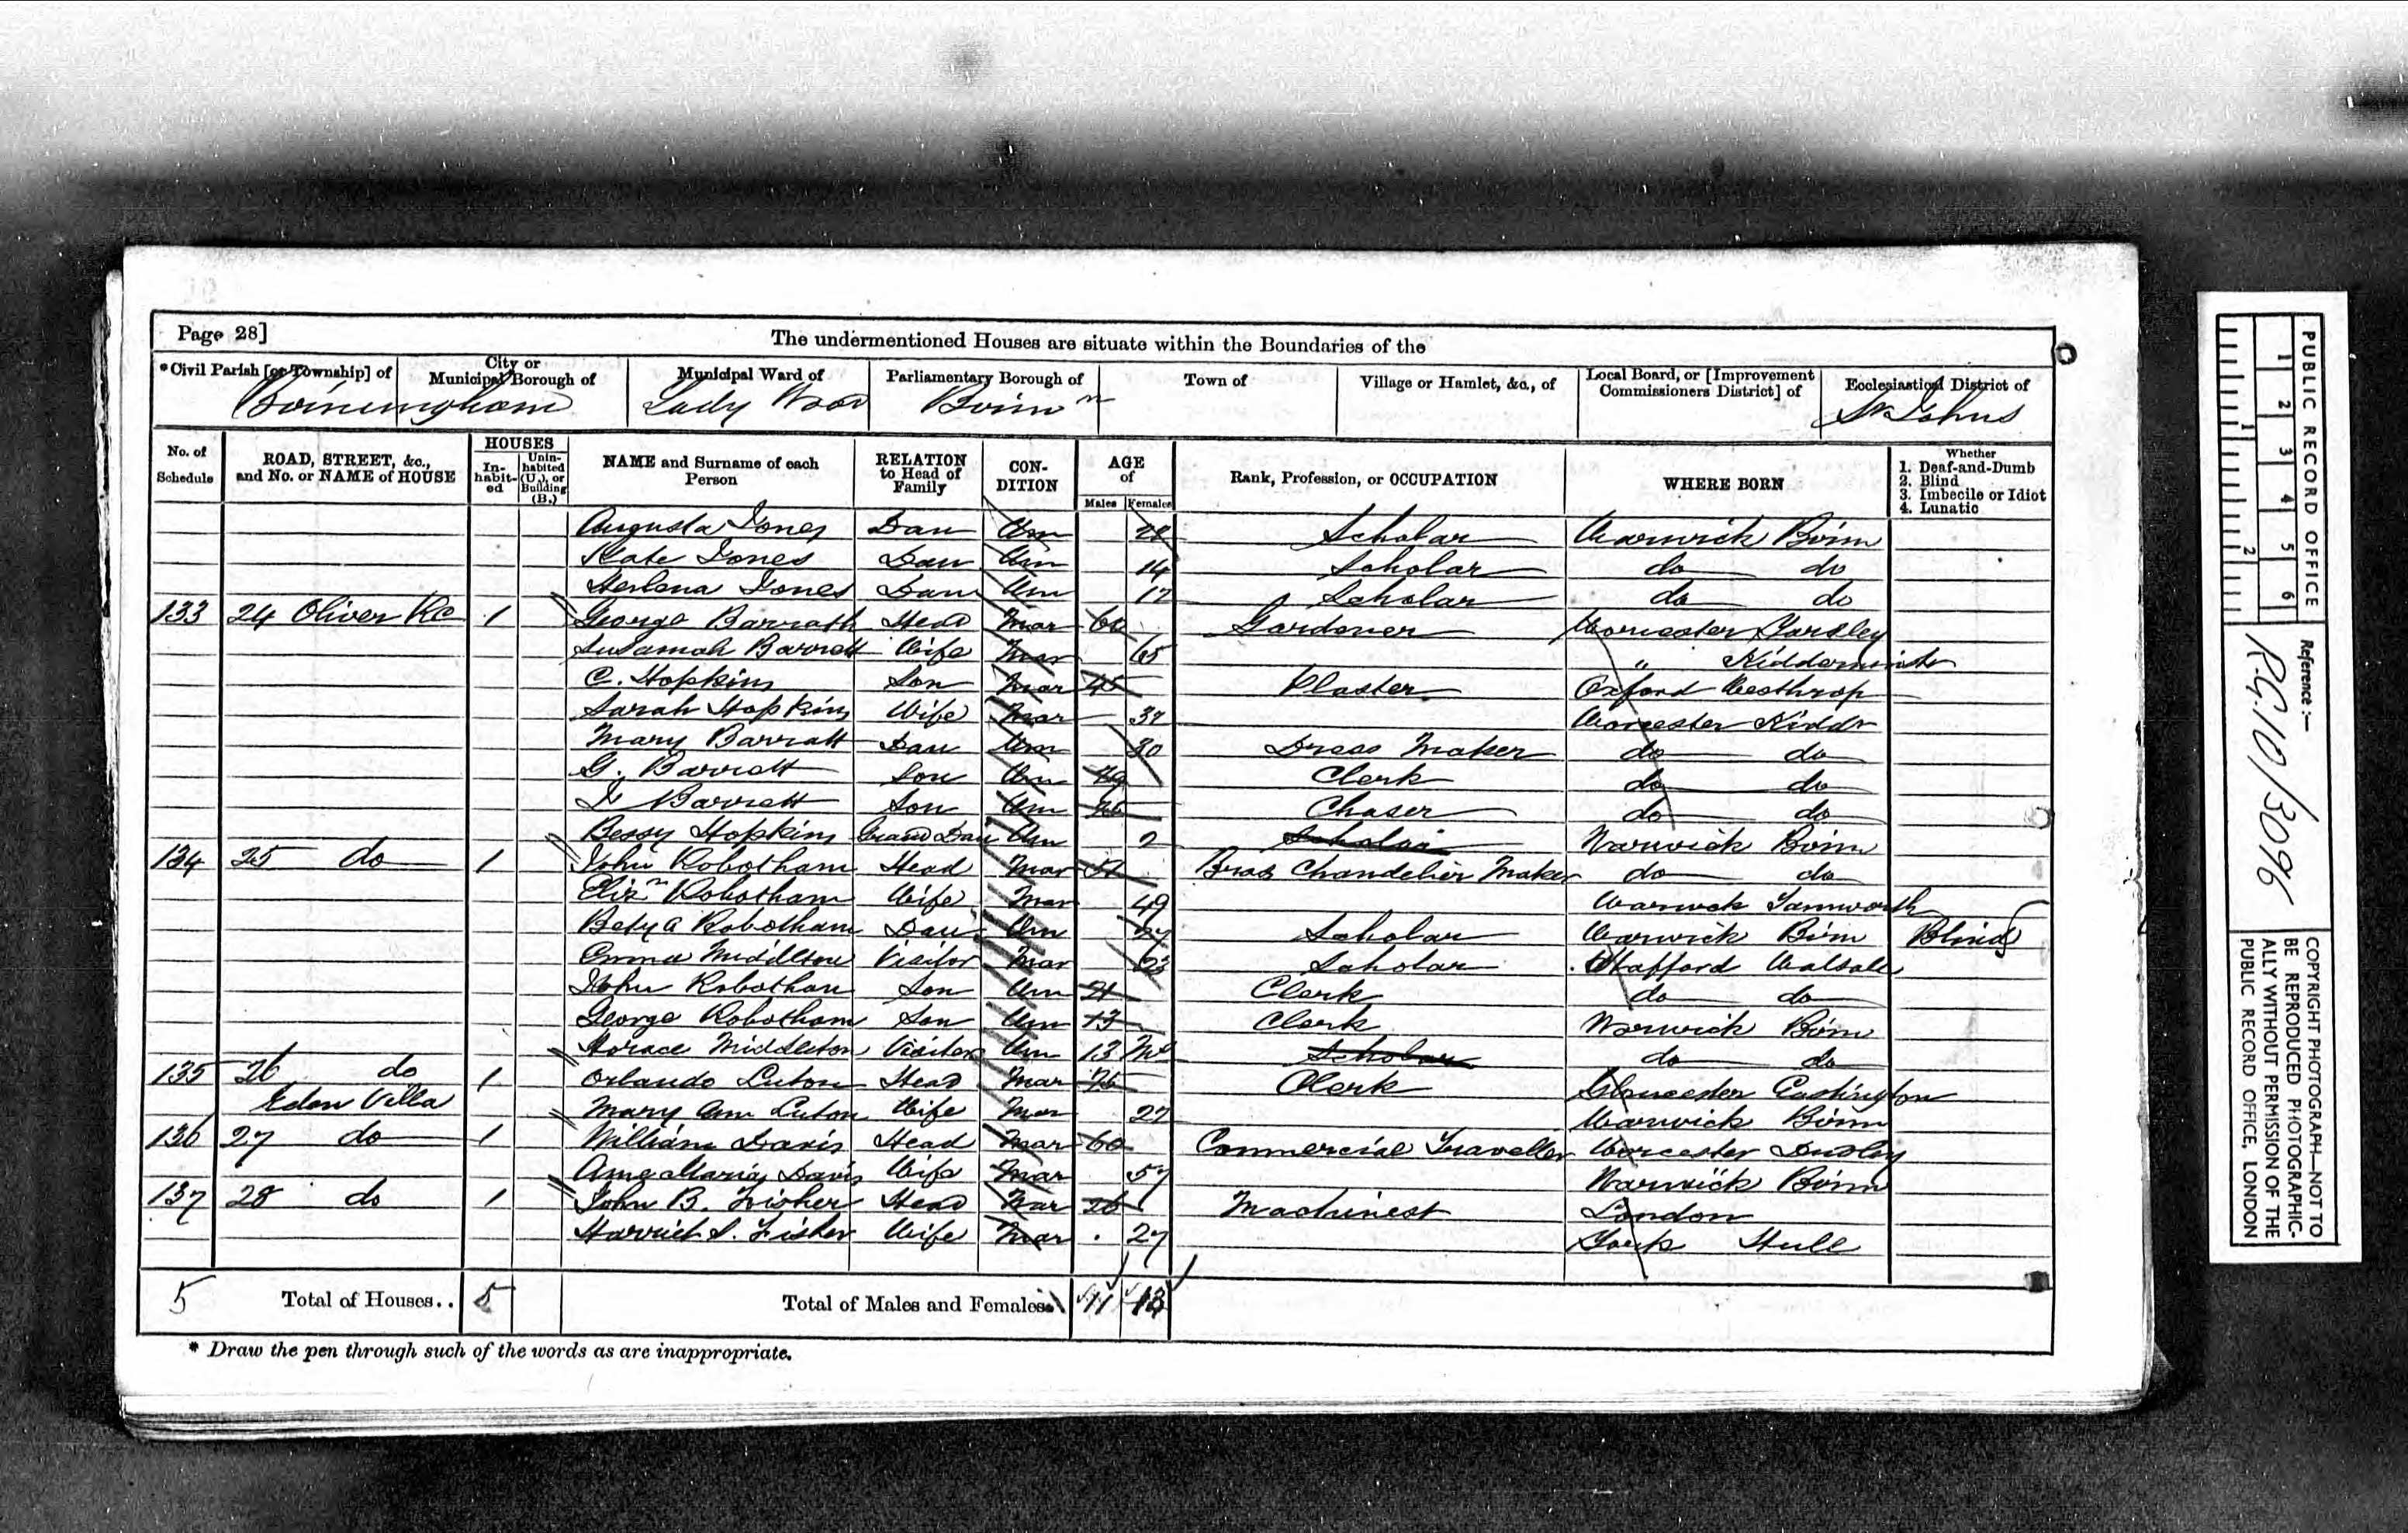 Page 28]
The undermentioned Houses are situate within the Boundaries of the
*Civil Parish [or Township] of
City or Municipal Borough of
Municipal Ward of
Parliamentary Borough of
Town of
Village or Hamlet, &c., of
Local Board, or [Improvement Commissioners District] of
Ecclesiastical District of
Birmingham
Lady Wood
Birm m
St Johns
No. of Schedule
ROAD, STREET, &c., and No. or NAME of HOUSE
HOUSES
In-habit-ed
Unin-habited (U.), or Building (B.)
NAME and Surname of each Person
RELATION to Head of Family
CON-DITION
AGE of
Males Females
Rank, Profession, or OCCUPATION
WHERE BORN
Whether
1. Deaf-and-Dumb
2. Blind
3. Imbecile or Idiot
4. Lunatic
Augusta Jones Dau Un Scholar Warwick Birm
Kate Jones Dau Un 14 Scholar do do
Jones Dau Un 12 Scholar do do
133 24 Oliver Rd 1 George Barratt Head Mar 60 Gardener Worcester
Susannah Barratt Wife Mar 65 " Kidderminster
C. Hopkins Son Mar 45 Plaster Oxford
Sarah Hopkins Wife Mar 37 Worcester Kiddr
Mary Barratt Dau Un 30 Dress Maker do do
G. Barratt Son Un Clerk do do
J Barratt Son Un Chaser do do
Bessy Hopkins Grand Dau Un 2 Scholar Warwick Birm
134 25 do 1 John Robotham Head Mar 51 Brass Chandelier Maker do do
Elizth Robotham Wife Mar 49 Warwick Tamworth
Bety A Robotham Dau Un 27 Scholar Warwick Birm Blind
Emma Middleton Visitor Mar 23 Scholar Stafford Walsall
John Robotham Son Un 21 Clerk do do
George Robotham Son Un 13 Clerk Warwick Birm
Horace Middleton Visitor Un 13 Mo Scholar do do
135 26 do 1 Orlando Luton Head Mar Clerk Gloucester
Eden Villa Mary Ann Luton Wife Mar 27 Warwick Birm
136 27 do 1 William Davis Head Mar 60 Commercial Traveller Worcester Dudley
Ame Maria Davis Wife Mar 57 Warwick Birm
137 28 do 1 John B. Fisher Head Mar 26 Machinest London
Harriet S. Fisher Wife Mar 27 York Hull
5 Total of Houses.. 5 Total of Males and Females.. 11 13
* Draw the pen through such of the words as are inappropriate.
PUBLIC RECORD OFFICE
1 2 3 4 5 6
1 2
Reference :—
RG.10/3096
COPYRIGHT PHOTOGRAPH—NOT TO
BE REPRODUCED PHOTOGRAPHIC-
ALLY WITHOUT PERMISSION OF THE
PUBLIC RECORD OFFICE, LONDON